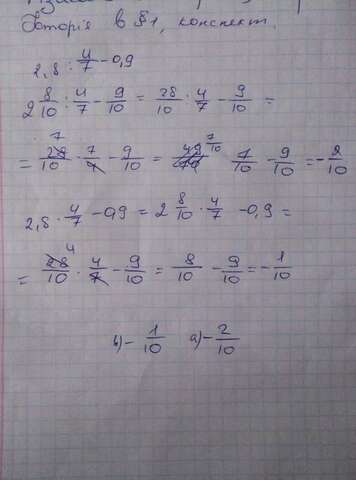 Теорія в §1, конспект.
2,8 : 4/7 - 0,9
2 8/10 : 4/7 - 9/10 = 28/10 · 4/7 - 9/10 =
= 28/10 · 7/4 - 9/10 = 7/10 7/10 - 9/10 = - 2/10
2,8 · 4/7 - 0,9 = 2 8/10 · 4/7 - 0,9 =
= 28/10 · 4/7 - 9/10 = 8/10 - 9/10 = - 1/10
b) - 1/10 a) - 2/10